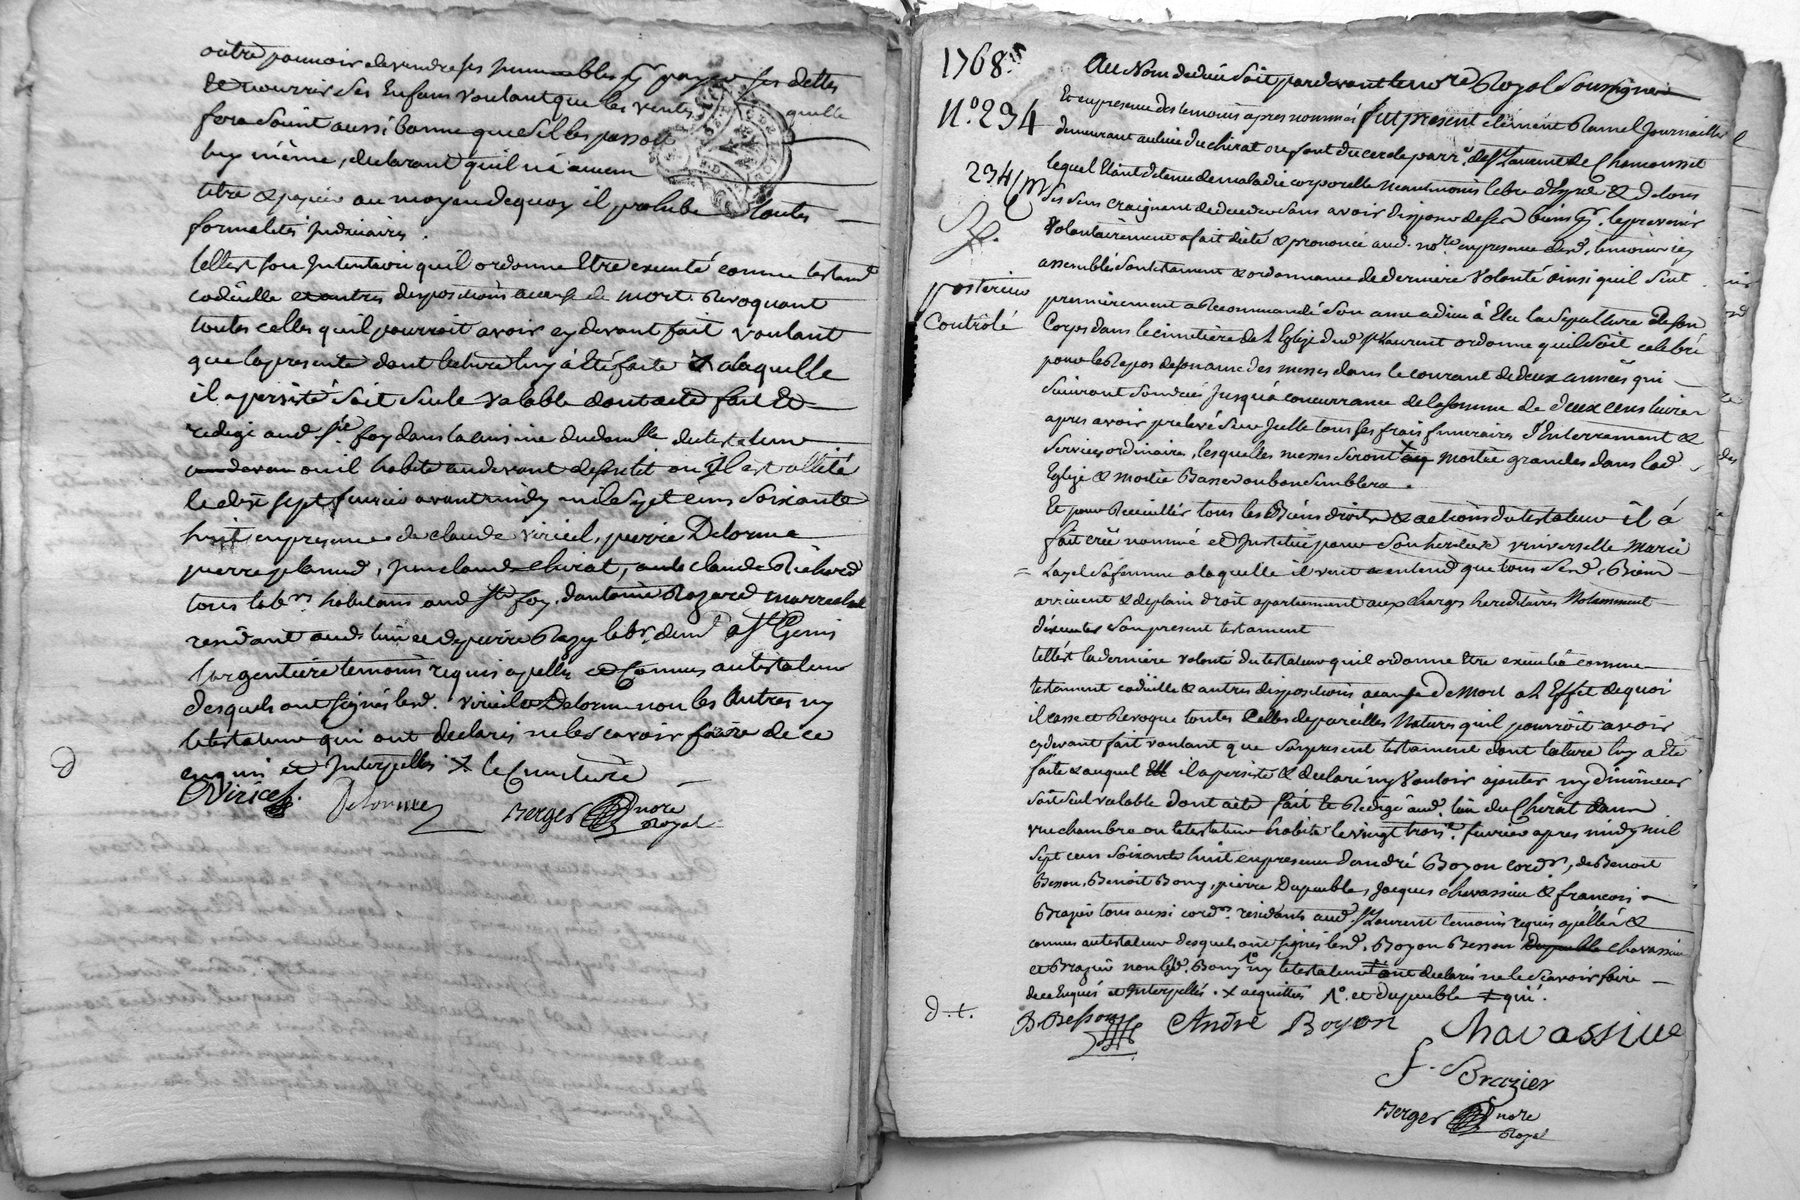 outre pouvoir de vendre ses immeubles pr payer ses dettes
de nourrir ses Enfans voulant que les ventes quelle
fera soint aussi bonne que sil les passoit
luy même, declarant quil n'a aucun
titre & papier au moyen de quoy il prohibe toutes
formalités judiciaires.
telle est son Intention qu'il ordonne Etre executé comme testamt
codicille et autres dispositions a cause de mort. Revoquant
toutes celles quil pourroit avoir cy devant fait voulant
que la presente dont lecture luy à été faite & a laquelle
il a persisté soit seule valable dont acte fait Et
redigé aud. Ste foy dans la cuisine du domlle du testateur
ou il habite au devant de son lit ou Il est allité
le dix sept fevrier avant midy mil sept cens soixante
huit en presence de claude viricel, pierre Delorme
pierre plamd, jean claude chirat, autre claude Richard
tous labrs. habitans aud Ste foy, d'antoine Razard marrechal
residant aud. lieu et de pierre Razy labr. demt a St Genis
l'argentiere temoins requis apellés et Connus au testateur
desquels ont signés lesd. viricel et Delorme non les Autres ny
le testateur qui ont declarés ne le scavoir faire de ce
enquis et Interpellés X le Cuntieré
CViricel Delorme Berger nore
Royal
d
1768.
No. 234
234
posterieur
Controlé
Au Nom de dieu soit pardevant le nore Royal soussigné
Et en presence des temoins apres nommés fut present clement Ramel Journaillier
demeurant au lieu du chirat ou font du cercle parr. de St Laurent de Chamousset
lequel Etant detenu de maladie corporelle Neantmoins libre d'Esprit & de tous
ses sens craignant de deceder sans avoir disposé de ses biens pr. le prevenir
Volontairement a fait dicté & prononcé aud. nore en presence desd. temoins icy
assemblés son testament & ordonnance de derniere Volonté ainsi quil suit
premierement a Recommandé son ame a dieu à Elu la sepulture de son
Corps dans le cimetiere de l'Eglize dud St Laurent ordonne quil soit celebré
pour le Repos de son ame des messes dans le courant de deux années qui
suivront son decés Jusquà concurrance de la somme de deux cens livres
apres avoir prelevé sur Icelle tous ses frais funeraires d'Interrement &
Services ordinaires, lesquelles messes seront X moitié grandes dans lad.
Eglize & moitié Basse ou bon semblera.
Et pour Recueillir tous les Biens droits & actions du testateur il à
fait créé nommé et Institué pour son heritiere universelle Marie
Layel sa femme a laquelle il veut & entend que tous sesd. Biens
arrivent & de plain droit apartiennent aux charges hereditaires Notamment
d'executer son present testament
telle est la derniere volonté du testateur quil ordonne Etre executée comme
testament codicille & autres dispositions a cause de Mort a l'Effet de quoi
il casse et Revoque toutes Celles de pareilles Natures quil pourroit avoir
cy devant fait voulant que son present testament dont lecture luy a Eté
faite & auquel il a persisté & declaré ny Vouloir ajouter ny diminuer
soit seul valable dont acte fait & Redigé aud. lieu du Chirat dans
une chambre ou le testateur habite le vingt trois. fevrier apres midy mil
sept cens soixante huit en presence d'andré Boyon cordr., de Benoit
Besson, Benoit Bony, pierre Dupeuble, Jacques chavassieu & francois
Brazier tous aussi cordrs. residants aud. St Laurent temoins requis apellés &
connus au testateur desquels ont signés lesd. Boyon Besson Dupeuble chavassieu
et Brazier non led. Bony 1o ny le testateur ‡ ont declarés ne le scavoir faire
de ce Enquis et Interpellés. X acquittées 1o. et dupeuble ‡ qui.
d.t.
B. Besson André Boyon Chavassieu
f. Brazier
Berger nore
Royal